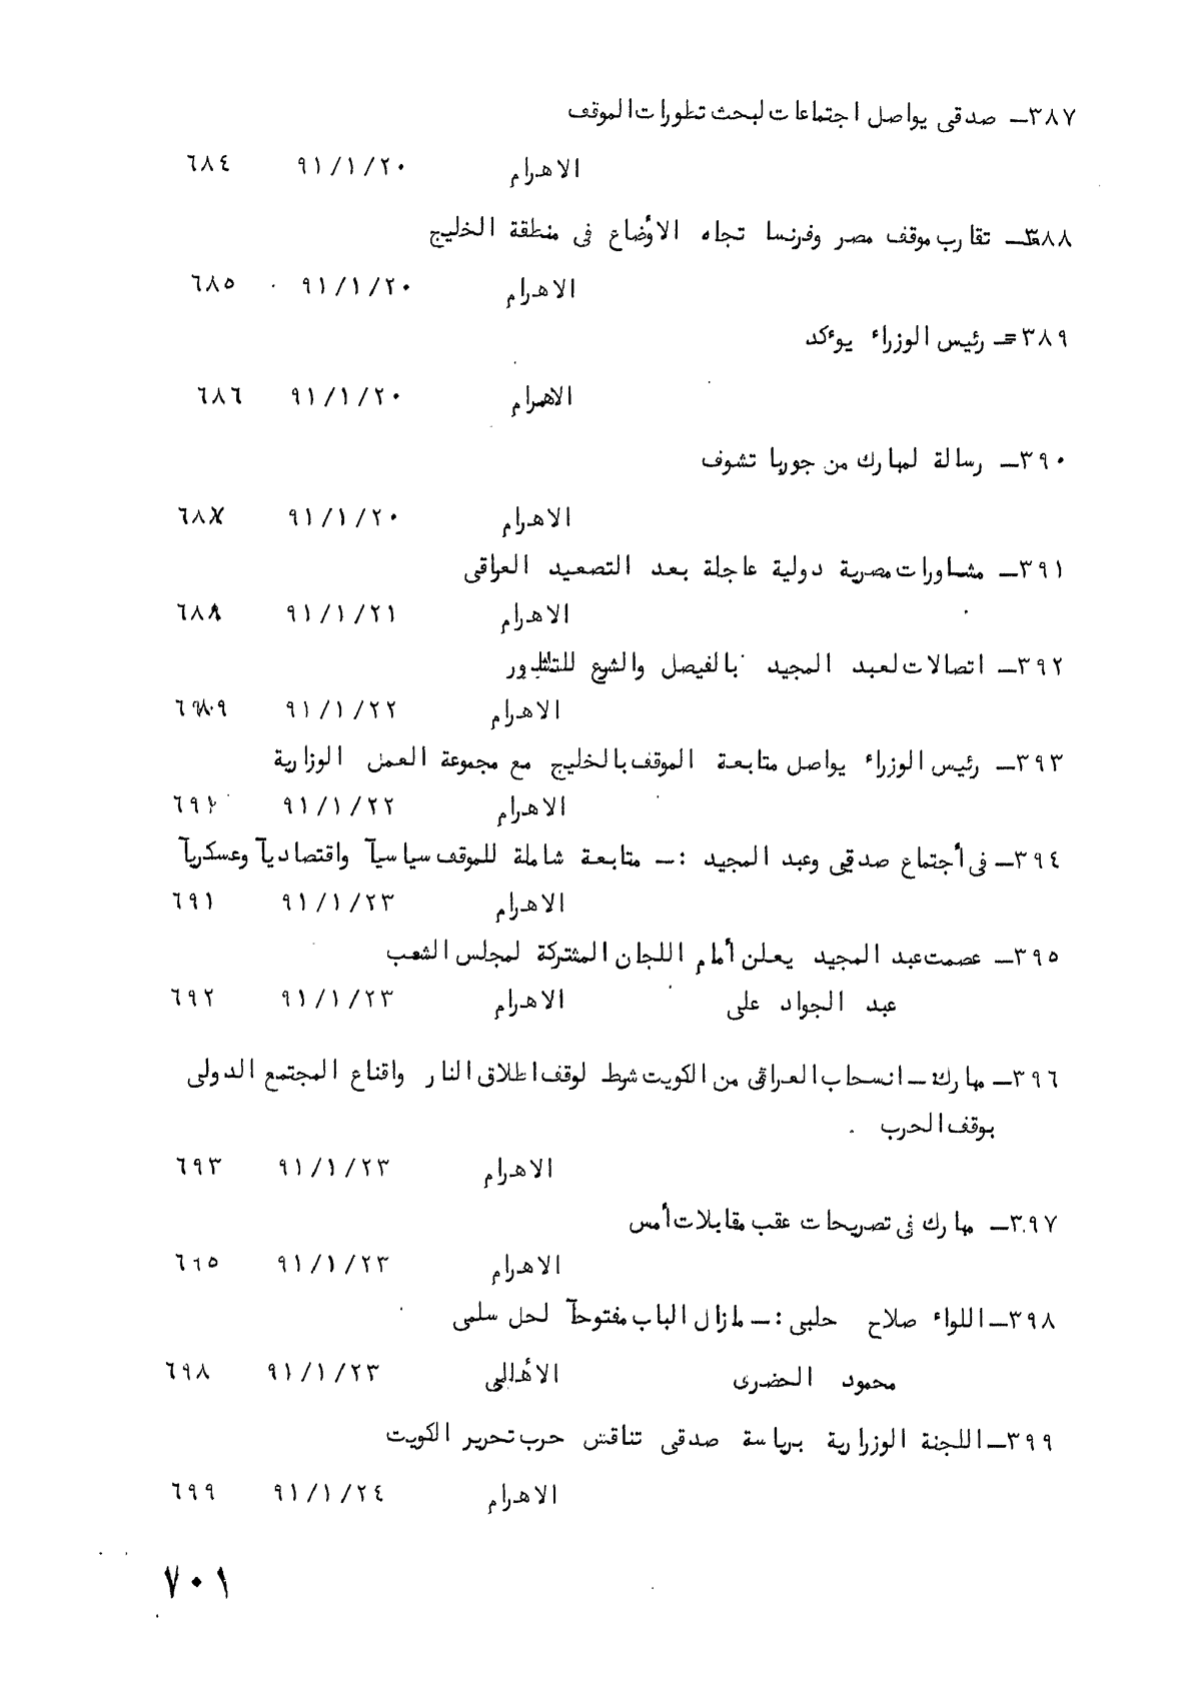 ٣٨٧ـ صدقى يواصل اجتماعات لبحث تطورات الموقف
الاهرام ٩١/١/٢٠ ٦٨٤
٣٨٨ـ تقارب موقف مصر وفرنسا تجاه الأوضاع فى منطقة الخليج
الاهرام ٩١/١/٢٠ ٦٨٥
٣٨٩ـ رئيس الوزراء يوءكد
الاهرام ٩١/١/٢٠ ٦٨٦
٣٩٠ـ رسالة لمبارك من جوربا تشوف
الاهرام ٩١/١/٢٠ ٦٨٧
٣٩١ـ مشاورات مصرية دولية عاجلة بعد التصعيد العراقى
الاهرام ٩١/١/٢١ ٦٨٨
٣٩٢ـ اتصالات لعبد المجيد بالفيصل والشرع
الاهرام ٩١/١/٢٢ ٦٨٩
٣٩٣ـ رئيس الوزراء يواصل متابعة الموقف بالخليج مع مجموعة العمل الوزارية
الاهرام ٩١/١/٢٢
٣٩٤ـ فى أجتماع صدقى وعبد المجيد :ـ متابعة شاملة للموقف سياسيآ واقتصاديآ وعسكريآ
الاهرام ٩١/١/٢٣ ٦٩١
٣٩٥ـ عصمت عبد المجيد يعلن أمام اللجان المشتركة لمجلس الشعب
عبد الجواد على الاهرام ٩١/١/٢٣ ٦٩٢
٣٩٦ـ مبارك ـ انسحاب العراقى من الكويت شرط لوقف اطلاق النار واقناع المجتمع الدولى
بوقف الحرب .
الاهرام ٩١/١/٢٣ ٦٩٣
٣٩٧ـ مبارك فى تصريحات عقب مقابلات أمس
الاهرام ٩١/١/٢٣ ٦٦٥
٣٩٨ـ اللواء صلاح حلبى :ـ مازال الباب مفتوحآ لحل سلمى
محمود الحضرى الأهالى ٩١/١/٢٣ ٦٩٨
٣٩٩ـ اللجنة الوزارية برياسة صدقى تناقش حرب تحرير الكويت
الاهرام ٩١/١/٢٤ ٦٩٩
٧٠١